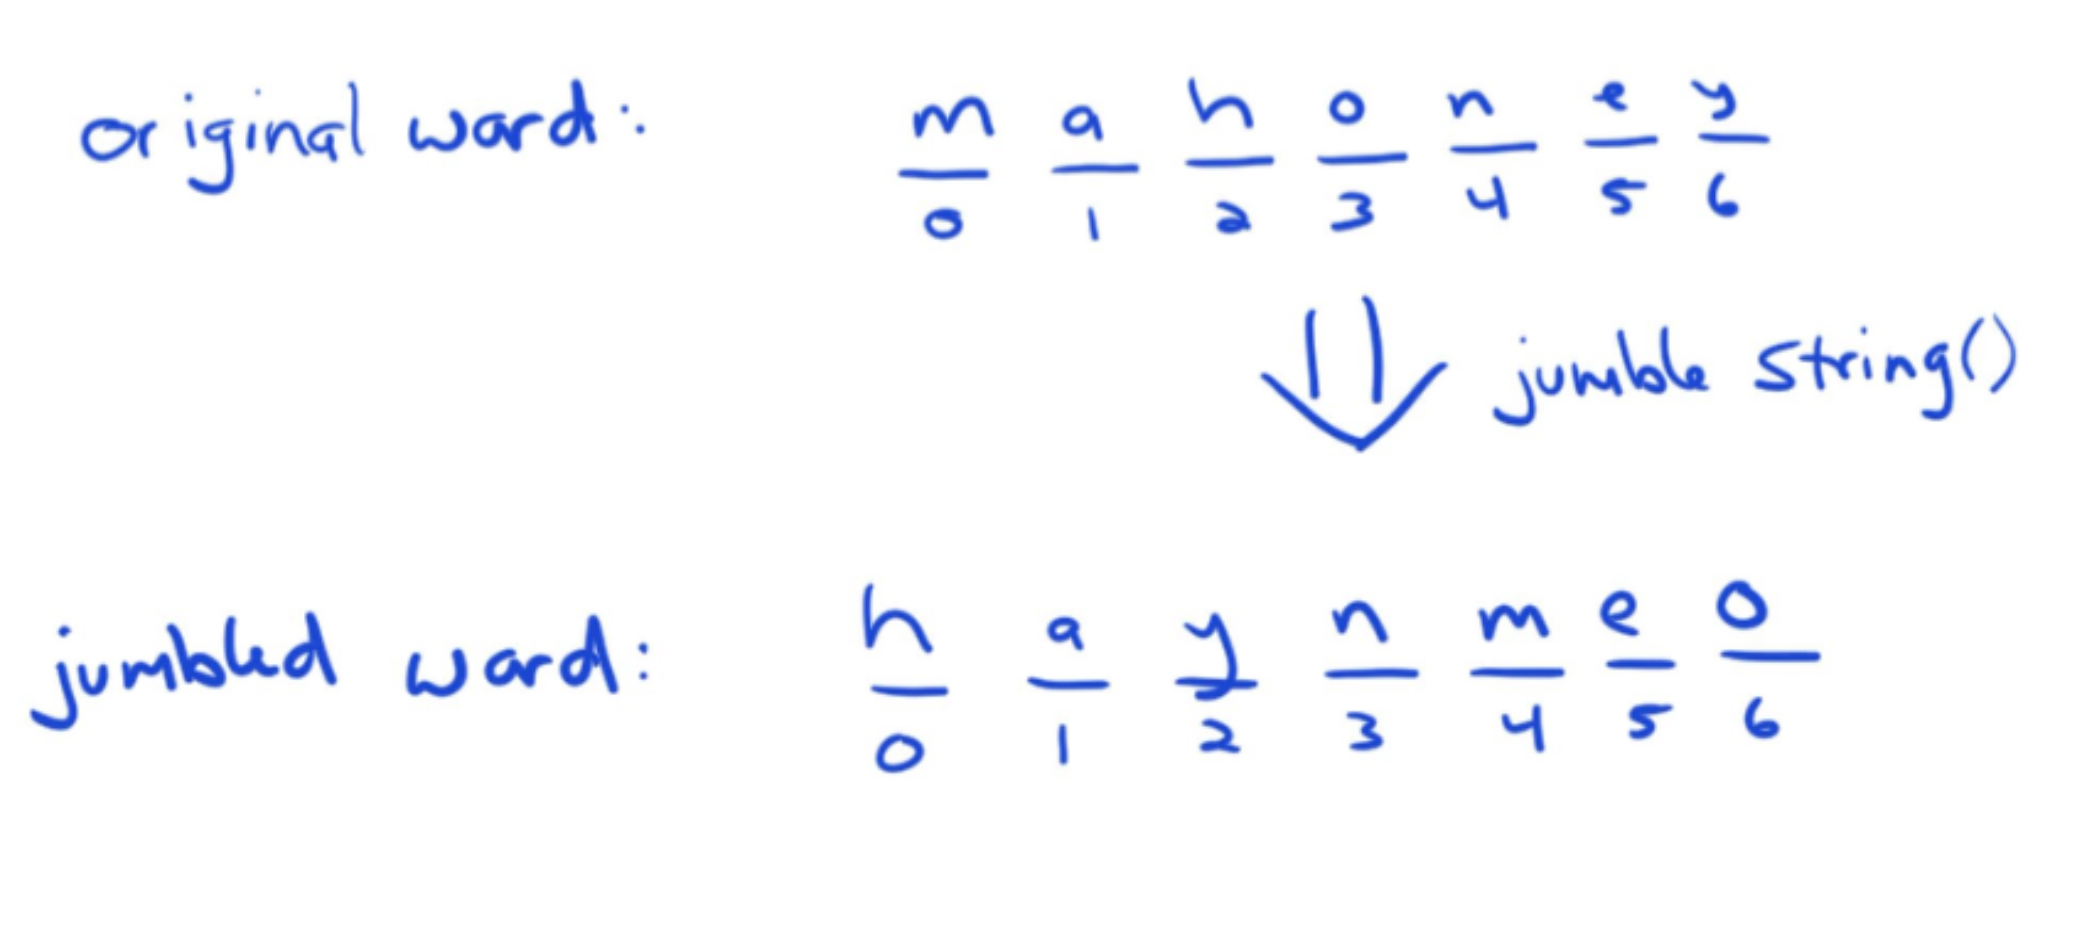 original word: m a h o n e y
0 1 2 3 4 5 6
jumble string()
jumbled word: h a y n m e o
0 1 2 3 4 5 6